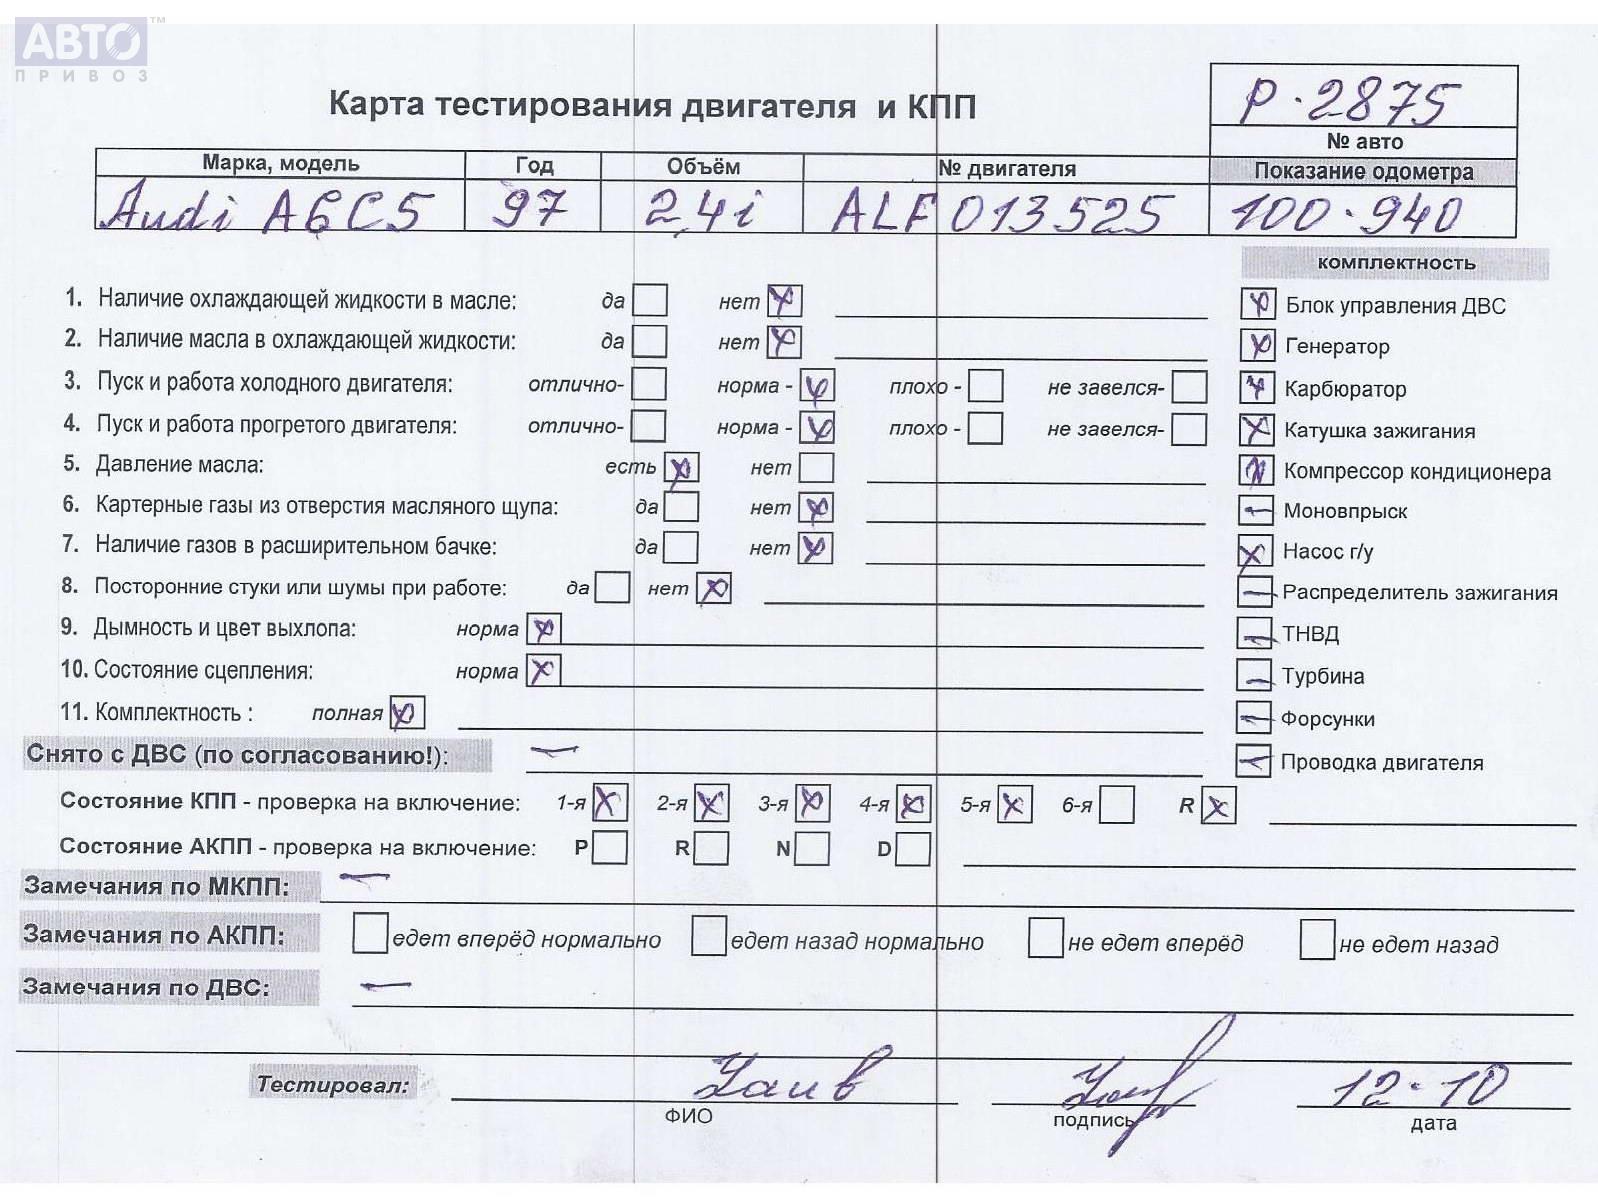 АВТО™
ПРИВОЗ
Карта тестирования двигателя и КПП
P.2875
№ авто
Марка, модель Год Объём № двигателя Показание одометра
Audi A6C5 97 2,4i ALF 013525 100.940
комплектность
1. Наличие охлаждающей жидкости в масле: да нет X
Блок управления ДВС X
2. Наличие масла в охлаждающей жидкости: да нет X
Генератор X
3. Пуск и работа холодного двигателя: отлично- норма - X плохо - не завелся-
Карбюратор X
4. Пуск и работа прогретого двигателя: отлично- норма - X плохо - не завелся-
Катушка зажигания X
5. Давление масла: есть X нет
Компрессор кондиционера
6. Картерные газы из отверстия масляного щупа: да нет X
Моновпрыск -
7. Наличие газов в расширительном бачке: да нет X
Насос г/у X
8. Посторонние стуки или шумы при работе: да нет X
Распределитель зажигания -
9. Дымность и цвет выхлопа: норма X
ТНВД -
10. Состояние сцепления: норма X
Турбина -
11. Комплектность : полная X
Форсунки -
Снято с ДВС (по согласованию!): -
Проводка двигателя -
Состояние КПП - проверка на включение: 1-я X 2-я X 3-я X 4-я X 5-я X 6-я R X
Состояние АКПП - проверка на включение: P R N D
Замечания по МКПП: -
Замечания по АКПП: едет вперёд нормально едет назад нормально не едет вперёд не едет назад
Замечания по ДВС: -
Тестировал: 12.10
ФИО подпись дата